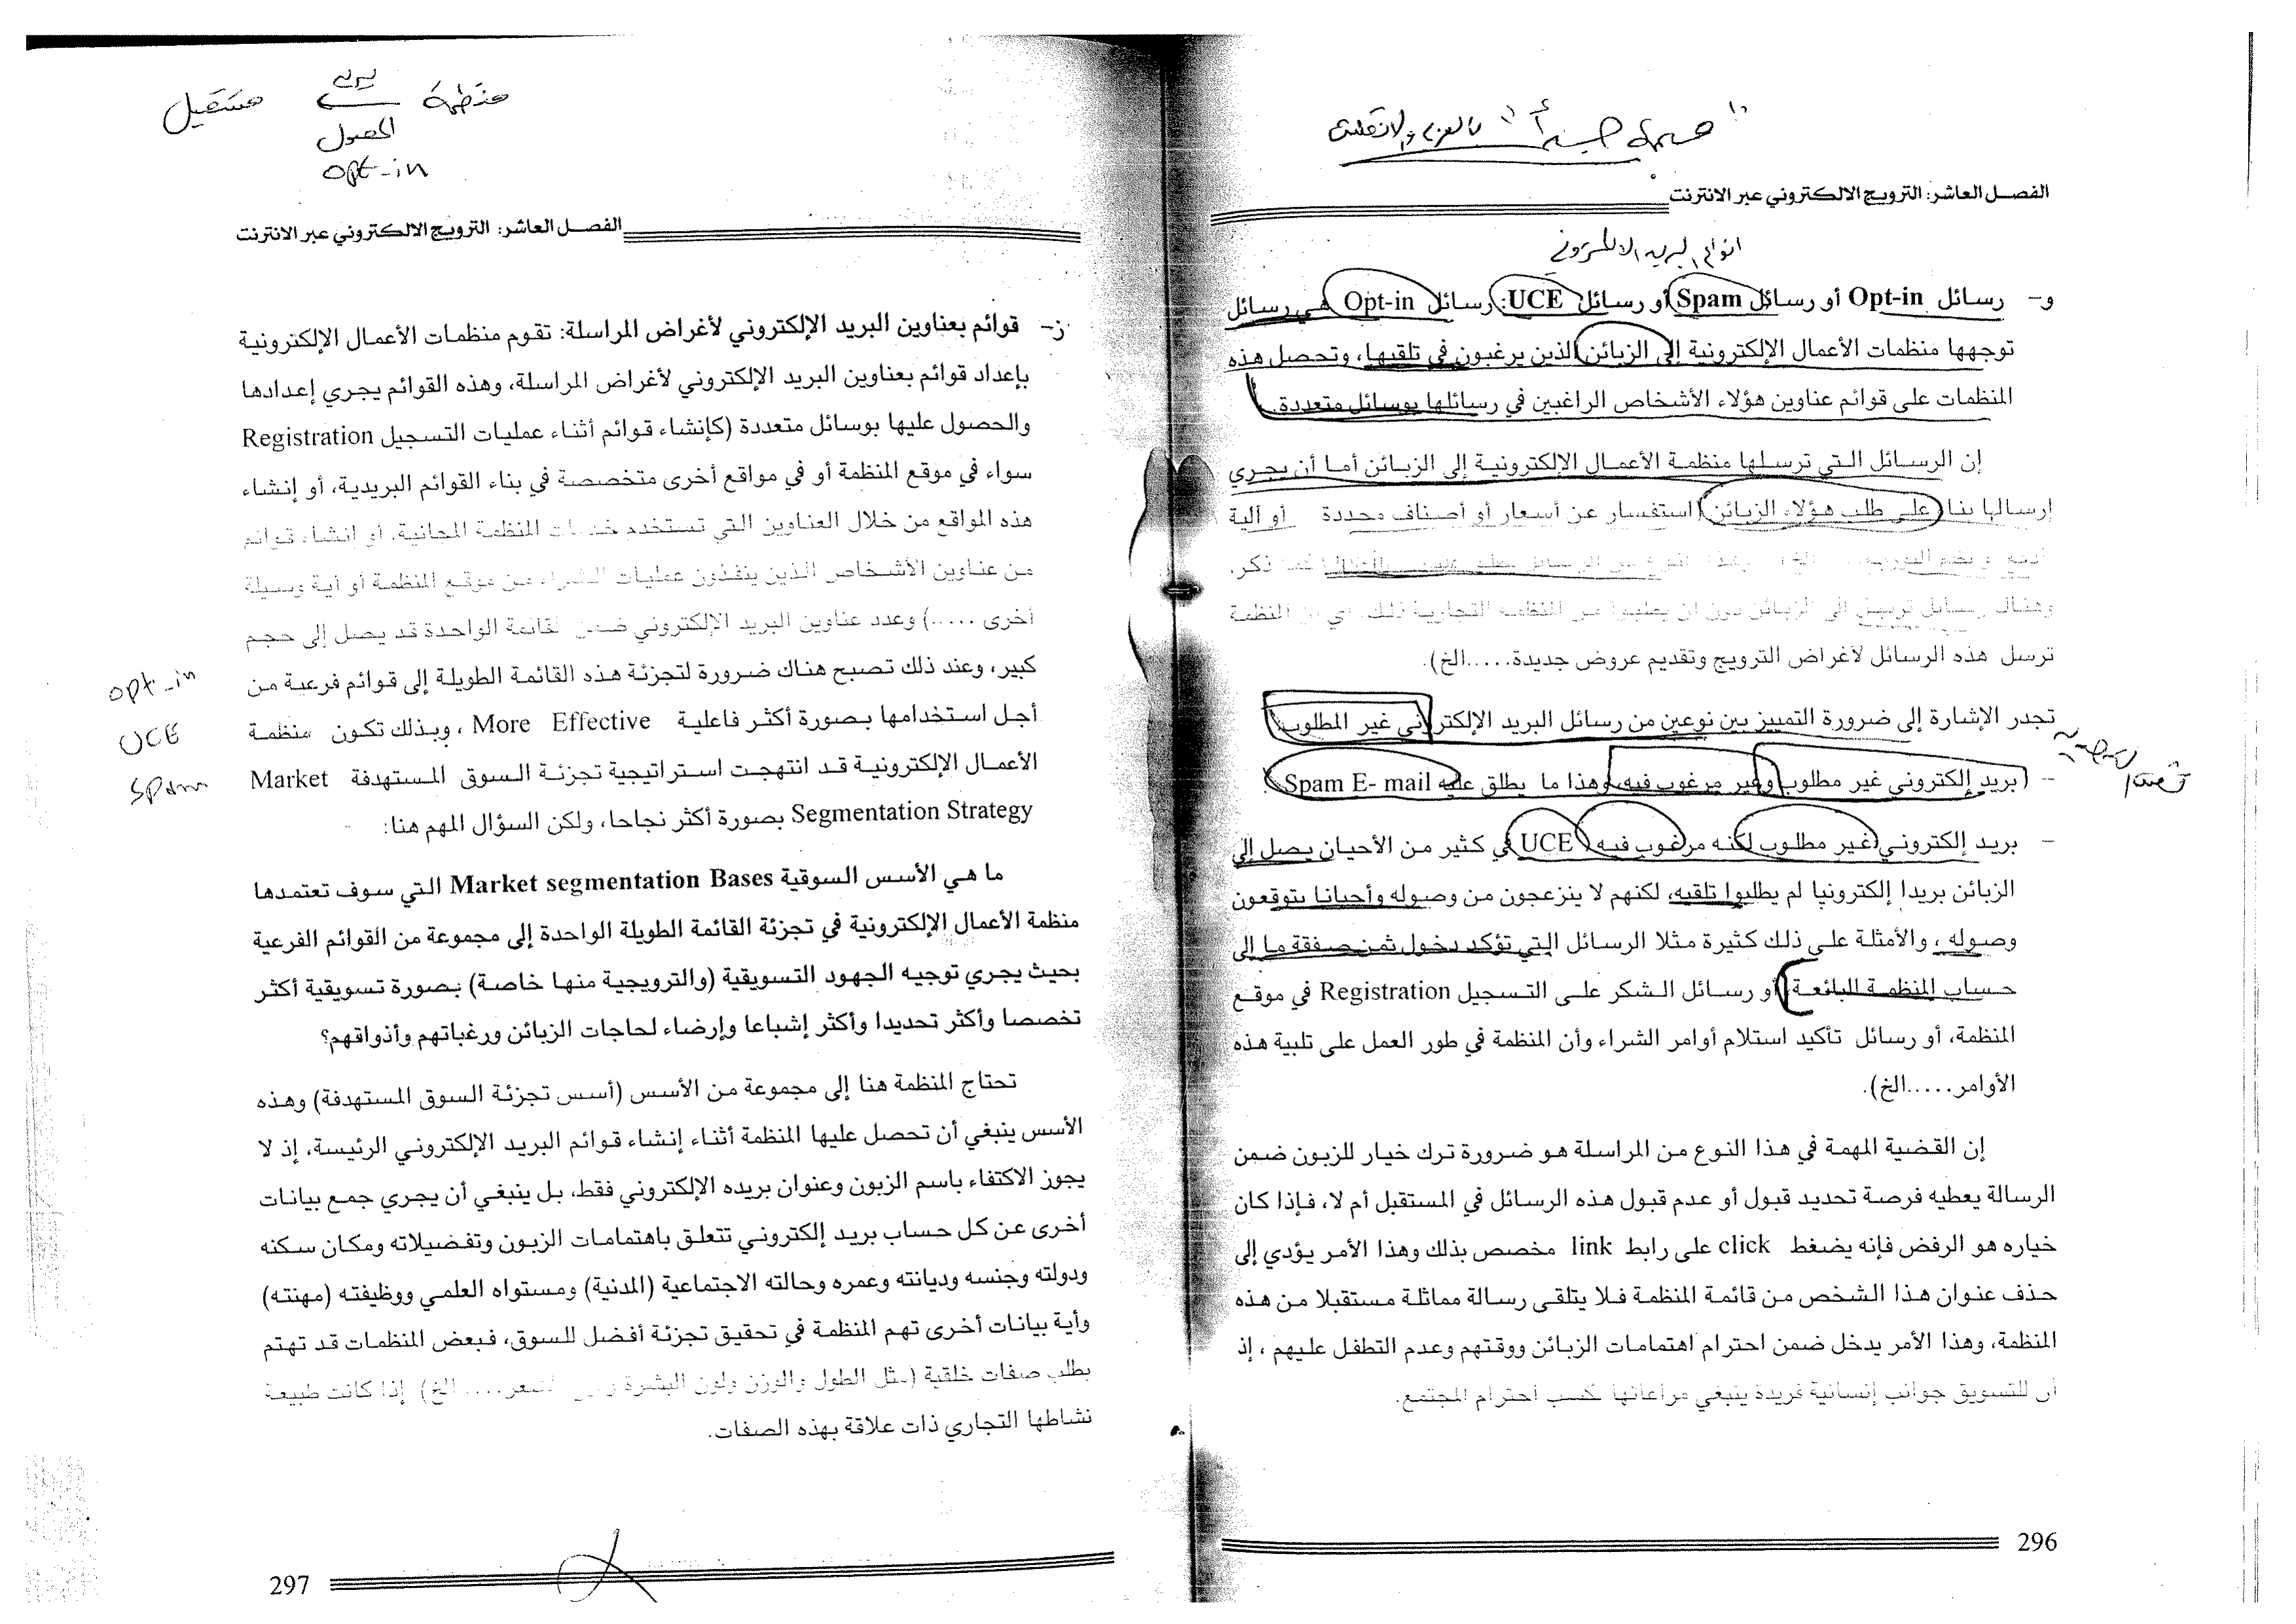 الفصل العاشر: الترويج الالكتروني عبر الانترنت
انواع البريد الالكتروني
و- رسائل Opt-in أو رسائل Spam أو رسائل UCE: رسائل Opt-in هي رسائل
توجهها منظمات الأعمال الإلكترونية إلى الزبائن الذين يرغبون في تلقيها، وتحصل هذه
المنظمات على قوائم عناوين هؤلاء الأشخاص الراغبين في رسائلها بوسائل متعددة.
إن الرسائل التي ترسلها منظمة الأعمال الإلكترونية إلى الزبائن أما أن يجري
إرسالها بنا على طلب هؤلاء الزبائن (استفسار عن أسعار أو أصناف محددة أو آلية
ذكر،
وهناك رسائل ترسل الى الزبائن دون ان يطلبوا من المنظمة التجارية ذلك المنظمة
ترسل هذه الرسائل لأغراض الترويج وتقديم عروض جديدة.....الخ).
تجدر الإشارة إلى ضرورة التمييز بين نوعين من رسائل البريد الإلكتروني غير المطلوب
- (بريد إلكتروني غير مطلوب وغير مرغوب فيه، وهذا ما يطلق عليه Spam E- mail
- بريد إلكتروني (غير مطلوب لكنه مرغوب فيه UCE في كثير من الأحيان يصل إلى
الزبائن بريدا إلكترونيا لم يطلبوا تلقيه، لكنهم لا ينزعجون من وصوله وأحيانا يتوقعون
وصوله، والأمثلة على ذلك كثيرة مثلا الرسائل التي تؤكد دخول ثمن صفقة ما إلى
حساب المنظمة البائعة، أو رسائل الشكر على التسجيل Registration في موقع
المنظمة، أو رسائل تأكيد استلام أوامر الشراء وأن المنظمة في طور العمل على تلبية هذه
الأوامر.....الخ).
إن القضية المهمة في هذا النوع من المراسلة هو ضرورة ترك خيار للزبون ضمن
الرسالة يعطيه فرصة تحديد قبول أو عدم قبول هذه الرسائل في المستقبل أم لا، فإذا كان
خياره هو الرفض فإنه يضغط click على رابط link مخصص بذلك وهذا الأمر يؤدي إلى
حذف عنوان هذا الشخص من قائمة المنظمة فلا يتلقى رسالة مماثلة مستقبلا من هذه
المنظمة، وهذا الأمر يدخل ضمن احترام اهتمامات الزبائن ووقتهم وعدم التطفل عليهم ، إذ
أن للتسويق جوانب إنسانية فريدة ينبغي مراعاتها لكسب احترام المجتمع.
296
منظمة مستقبل
الحصول
opt-in
الفصل العاشر: الترويج الالكتروني عبر الانترنت
ز- قوائم بعناوين البريد الإلكتروني لأغراض المراسلة: تقوم منظمات الأعمال الإلكترونية
بإعداد قوائم بعناوين البريد الإلكتروني لأغراض المراسلة، وهذه القوائم يجري إعدادها
والحصول عليها بوسائل متعددة (كإنشاء قوائم أثناء عمليات التسجيل Registration
سواء في موقع المنظمة أو في مواقع أخرى متخصصة في بناء القوائم البريدية، أو إنشاء
هذه المواقع من خلال العناوين التي تستخدم خدمات المنظمة المجانية، أو إنشاء قوائم
من عناوين الأشخاص الذين ينفذون عمليات الشراء من موقع المنظمة أو أية وسيلة
أخرى .....) وعدد عناوين البريد الإلكتروني ضمن القائمة الواحدة قد يصل إلى حجم
كبير، وعند ذلك تصبح هناك ضرورة لتجزئة هذه القائمة الطويلة إلى قوائم فرعية من
أجل استخدامها بصورة أكثر فاعلية More Effective ، وبذلك تكون منظمة
الأعمال الإلكترونية قد انتهجت استراتيجية تجزئة السوق المستهدفة Market
Segmentation Strategy بصورة أكثر نجاحا، ولكن السؤال المهم هنا:
opt-in
UCE
Spam
ما هي الأسس السوقية Market segmentation Bases التي سوف تعتمدها
منظمة الأعمال الإلكترونية في تجزئة القائمة الطويلة الواحدة إلى مجموعة من القوائم الفرعية
بحيث يجري توجيه الجهود التسويقية (والترويجية منها خاصة) بصورة تسويقية أكثر
تخصصا وأكثر تحديدا وأكثر إشباعا وإرضاء لحاجات الزبائن ورغباتهم وأذواقهم؟
تحتاج المنظمة هنا إلى مجموعة من الأسس (أسس تجزئة السوق المستهدفة) وهذه
الأسس ينبغي أن تحصل عليها المنظمة أثناء إنشاء قوائم البريد الإلكتروني الرئيسة، إذ لا
يجوز الاكتفاء باسم الزبون وعنوان بريده الإلكتروني فقط، بل ينبغي أن يجري جمع بيانات
أخرى عن كل حساب بريد إلكتروني تتعلق باهتمامات الزبون وتفضيلاته ومكان سكنه
ودولته وجنسه وديانته وعمره وحالته الاجتماعية (المدنية) ومستواه العلمي ووظيفته (مهنته)
وأية بيانات أخرى تهم المنظمة في تحقيق تجزئة أفضل للسوق، فبعض المنظمات قد تهتم
بطلب صفات خلقية (مثل الطول والوزن ولون البشرة ولون الشعر.... الخ) إذا كانت طبيعة
نشاطها التجاري ذات علاقة بهذه الصفات.
297